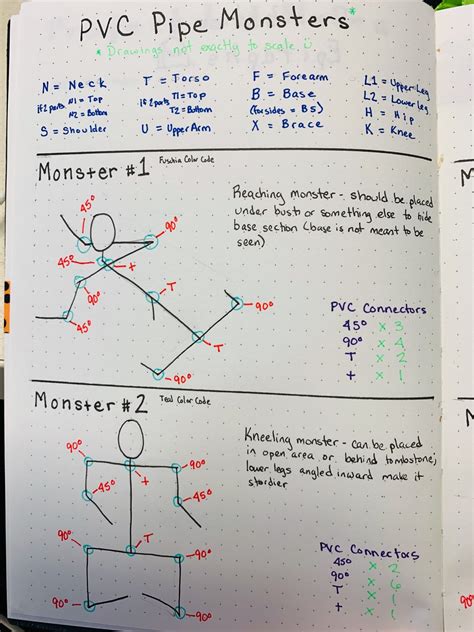 PVC Pipe Monsters*
* Drawings not exactly to scale ü
N = Neck
if 2 parts N1 = Top
N2 = Bottom
S = Shoulder
T = Torso
if 2 parts T1 = Top
T2 = Bottom
U = Upper Arm
F = Forearm
B = Base
(for sides = BS)
X = Brace
L1 = Upper Leg
L2 = Lower Leg
H = Hip
K = Knee
Monster #1 Fuschia Color Code
Reaching monster - should be placed
under bust or something else to hide
base section (base is not meant to be
seen)
45°
90°
45°
+
90°
T
45°
90°
T
90°
PVC Connectors
45° x 3
90° x 4
T x 2
+ x 1
Monster #2 Teal Color Code
Kneeling monster - can be placed
in open area or behind tombstone;
lower legs angled inward make it
sturdier
90°
90°
+
45°
45°
90°
T
90°
90°
90°
PVC Connectors
45° x 2
90° x 6
T x 1
+ x 1
M
M
90°